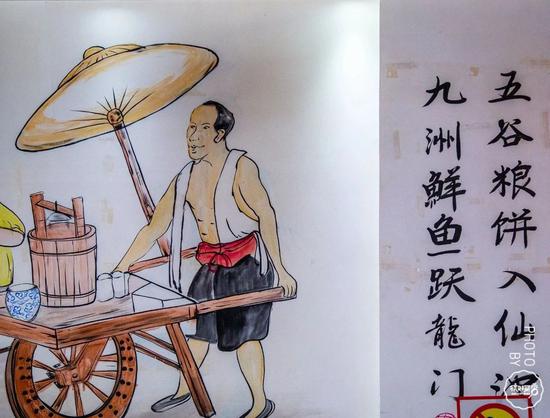 五谷粮饼入仙
九洲鲜鱼跃龍门
PHOTO BY